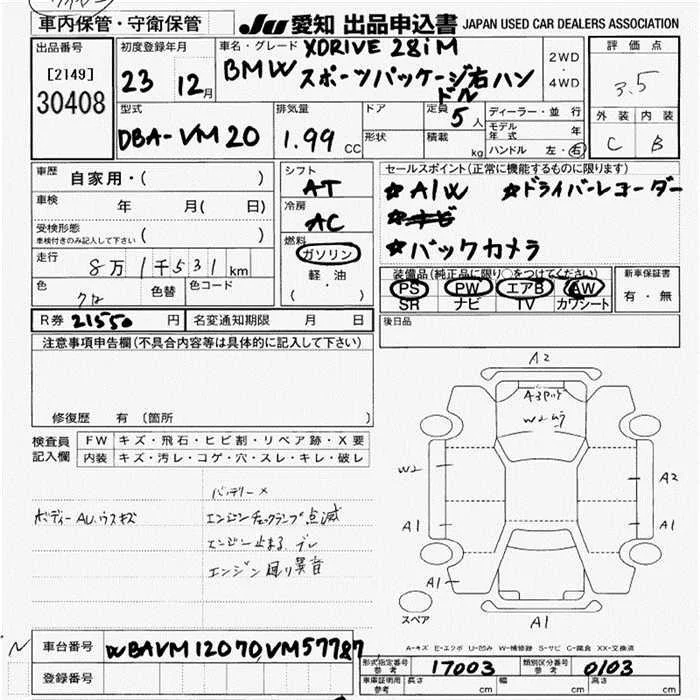 車内保管・守衛保管
JU 愛知 出品申込書 JAPAN USED CAR DEALERS ASSOCIATION
出品番号
[2149]
30408
初度登録年月
23 12月
車名・グレード XDRIVE 28iM
BMW スポーツパッケージ右ハンドル
2WD
・
4WD
評価点
3.5
外装 内装
C B
型式
DBA-VM20
排気量
1.99 CC
ドア
形状
定員 5人
積載 kg
ディーラー・並行
モデル年式 年
ハンドル 左・右
車歴 自家用・( )
車検 年 月( 日)
受検形態
車検付きのみ記入して下さい ( )
走行 8万1千531km
色 クロ 色替 色コード
シフト
AT
冷房
AC
燃料
ガソリン
軽油
( ・ )
セールスポイント(正常に機能するものに限ります)
☆A/W ☆ドライバーレコーダー
☆バックカメラ
装備品(純正品に限り○をつけてください)
PS PW エアB AW
SR ナビ TV カワシート
新車保証書
有・無
R券 21550円 名変通知期限 月 日
後日品
注意事項申告欄(不具合内容等は具体的に記入して下さい)
修復歴 有 (箇所 )
検査員記入欄
FW キズ・飛石・ヒビ割・リペア跡・X要
内装 キズ・汚レ・コゲ・穴・スレ・キレ・破レ
バッテリー×
ボディーAU.ウスキズ エンジンチェックランプ点滅
エンジン止まる.
エンジン廻り異音
A2
A3
W2ムラ
W2
A2
A1
A1
A1
A1
スペア
A-キズ E-エクボ U-凹み W-補修跡 S-サビ C-腐食 XX-交換済
車台番号 WBAVM12070VM57787
登録番号
型式指定番号 参考 17003 類別区分番号 参考 0103
車庫証明用 参考 長さ cm 幅 cm 高さ cm